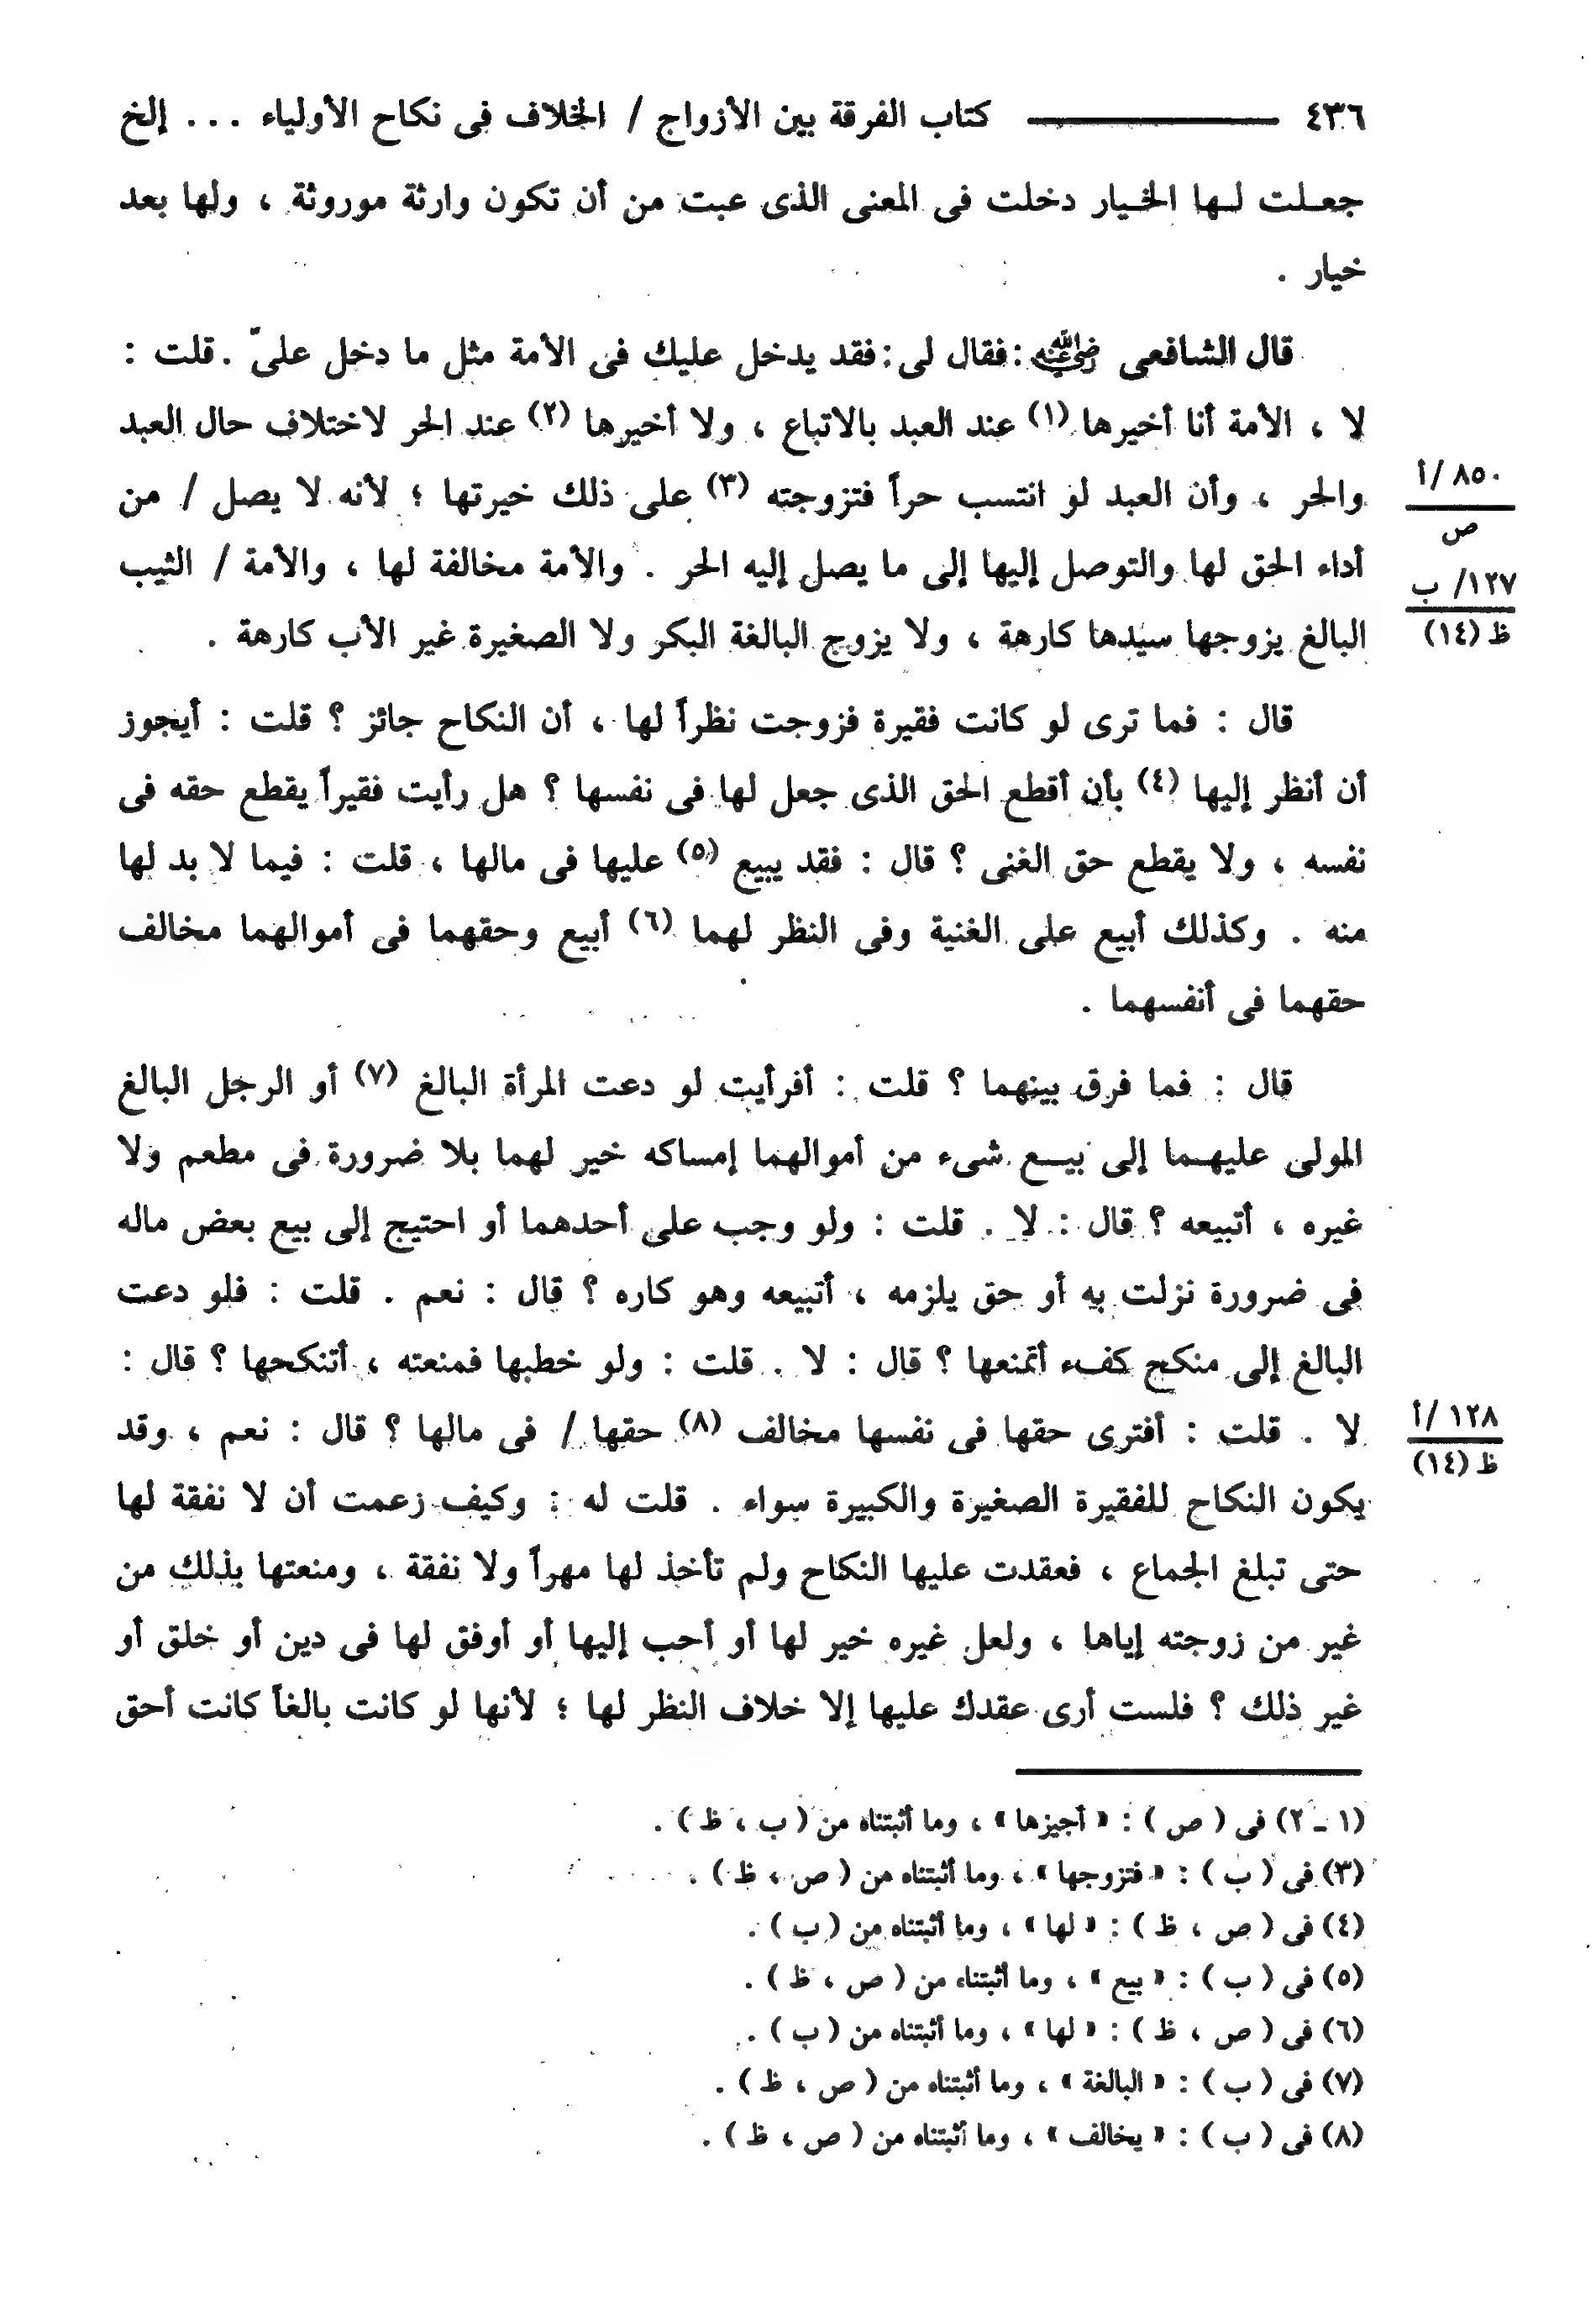 ٤٣٦ ــــــــــــ كتاب الفرقة بين الأزواج / الخلاف فى نكاح الأولياء ... إلخ
جعـلت لـها الخـيار دخلت فى المعنى الذى عبت من أن تكون وارثة موروثة ، ولها بعد
خيار .
قال الشافعى رضي الله عنه : فقال لى : فقد يدخل عليك فى الأمة مثل ما دخل علىّ . قلت :
لا ، الأمة أنا أخيرها (١) عند العبد بالاتباع ، ولا أخيرها (٢) عند الحر لاختلاف حال العبد
والحر ، وأن العبد لو انتسب حراً فتزوجته (٣) على ذلك خيرتها ؛ لأنه لا يصل / من
٨٥٠ /أ
ص
أداء الحق لها والتوصل إليها إلى ما يصل إليه الحر . والأمة مخالفة لها ، والأمة / الثيب
١٢٧/ ب
ظ (١٤)
البالغ يزوجها سيدها كارهة ، ولا يزوج البالغة البكر ولا الصغيرة غير الأب كارهة .
قال : فما ترى لو كانت فقيرة فزوجت نظراً لها ، أن النكاح جائز ؟ قلت : أيجوز
أن أنظر إليها (٤) بأن أقطع الحق الذى جعل لها فى نفسها ؟ هل رأيت فقيراً يقطع حقه فى
نفسه ، ولا يقطع حق الغنى ؟ قال : فقد يبيع (٥) عليها فى مالها ، قلت : فيما لا بد لها
منه . وكذلك أبيع على الغنية وفى النظر لهما (٦) أبيع وحقهما فى أموالهما مخالف
حقهما فى أنفسهما .
قال : فما فرق بينهما ؟ قلت : أفرأيت لو دعت المرأة البالغ (٧) أو الرجل البالغ
المولى عليهـما إلى بيـع شىء من أموالهما إمساكه خير لهما بلا ضرورة فى مطعم ولا
غيره ، أتبيعه ؟ قال : لا . قلت : ولو وجب على أحدهما أو احتيج إلى بيع بعض ماله
فى ضرورة نزلت به أو حق يلزمه ، أتبيعه وهو كاره ؟ قال : نعم . قلت : فلو دعت
البالغ إلى منكح كفء أتمنعها ؟ قال : لا . قلت : ولو خطبها فمنعته ، أتنكحها ؟ قال :
لا . قلت : أفترى حقها فى نفسها مخالف (٨) حقها / فى مالها ؟ قال : نعم ، وقد
١٢٨ /أ
ظ (١٤)
يكون النكاح للفقيرة الصغيرة والكبيرة سواء . قلت له : وكيف زعمت أن لا نفقة لها
حتى تبلغ الجماع ، فعقدت عليها النكاح ولم تأخذ لها مهراً ولا نفقة ، ومنعتها بذلك من
غير من زوجته إياها ، ولعل غيره خير لها أو أحب إليها أو أوفق لها فى دين أو خلق أو
غير ذلك ؟ فلست أرى عقدك عليها إلا خلاف النظر لها ؛ لأنها لو كانت بالغاً كانت أحق
(١ ـ ٢) فى ( ص ) : « أجيزها » ، وما أثبتناه من ( ب ، ظ ) .
(٣) فى ( ب ) : « فتزوجها » ، وما أثبتناه من ( ص ، ظ ) .
(٤) فى ( ص ، ظ ) : « لها » ، وما أثبتناه من ( ب ) .
(٥) فى ( ب ) : « بيع » ، وما أثبتناه من ( ص ، ظ ) .
(٦) فى ( ص ، ظ ) : « لها » ، وما أثبتناه من ( ب ) .
(٧) فى ( ب ) : « البالغة » ، وما أثبتناه من ( ص ، ظ ) .
(٨) فى ( ب ) : « يخالف » ، وما أثبتناه من ( ص ، ظ ) .